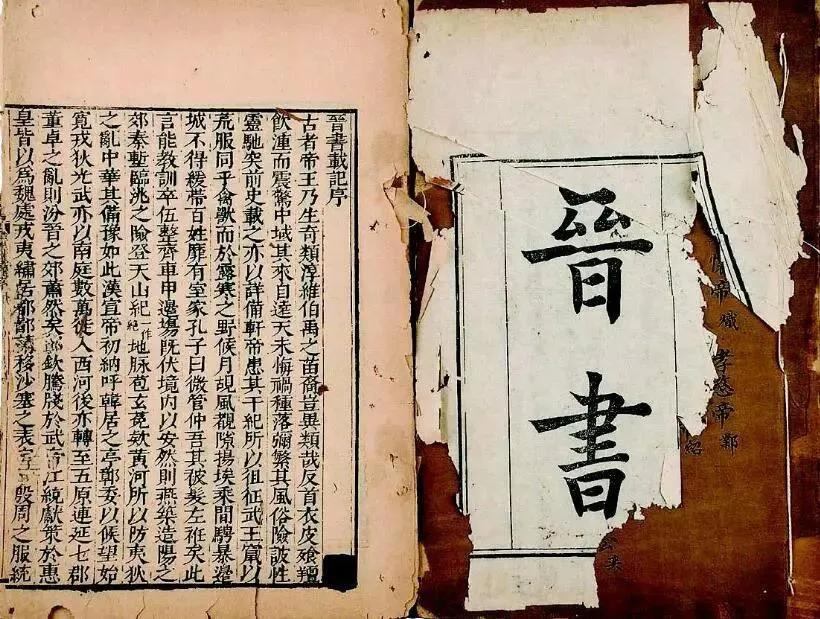 晉書
帝熾 孝愍帝鄴
紹
晉書載記序
古者帝王乃生奇類淳維伯禹之苗裔豈異類哉反首衣皮飧羶
飲湩而震驚中域其來自遠天未悔禍種落彌繁其風俗險詖性
靈馳突前史載之亦以詳備軒帝患其干紀所以徂征武王竄以
荒服同乎禽獸而於露寒之野候月覘風覩隙揚埃乘間騁暴邊
城不得緩帶百姓靡有室家孔子曰微管仲吾其被髮左袵矣此
言能教訓卒伍整齊車甲邊塲既伏境內以安然則燕築造陽之
郊秦塹臨洮之險登天山紀一作絕地脉苞玄菟欵黃河所以防夷狄
之亂中華其備豫如此漢宣帝初納呼韓居之亭鄣委以候望始
寬戎狄光武亦以南庭數萬徙入西河後亦轉至五原連延七郡
董卓之亂則汾晉之郊蕭然矣郭欽騰牋於武帝江統獻策於惠
皇皆以爲魏處戎夷繡居都鄙請移沙塞之表殷周之服統